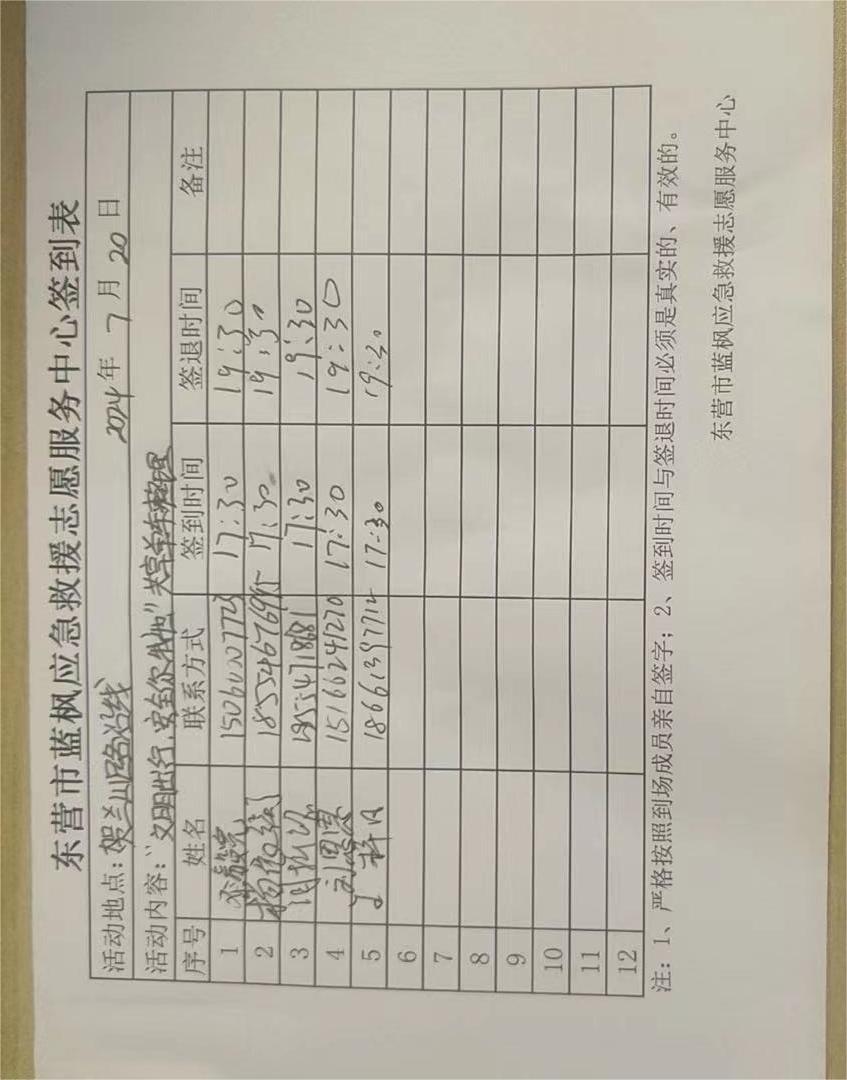 东营市蓝枫应急救援志愿服务中心签到表
活动地点：贺兰山路沿线 2024年 7月 20日
活动内容：“文明出行，安全你我他”共享单车整理
序号 姓名 联系方式 签到时间 签退时间 备注
1 17:30 19:30
2 18554676995 17:30 19:30
3 17:30 19:30
4 刘思雨 15166241270 17:30 19:30
5 18661397712 17:30 19:30
6
7
8
9
10
11
12
注：1、严格按照到场成员亲自签字；2、签到时间与签退时间必须是真实的、有效的。
东营市蓝枫应急救援志愿服务中心